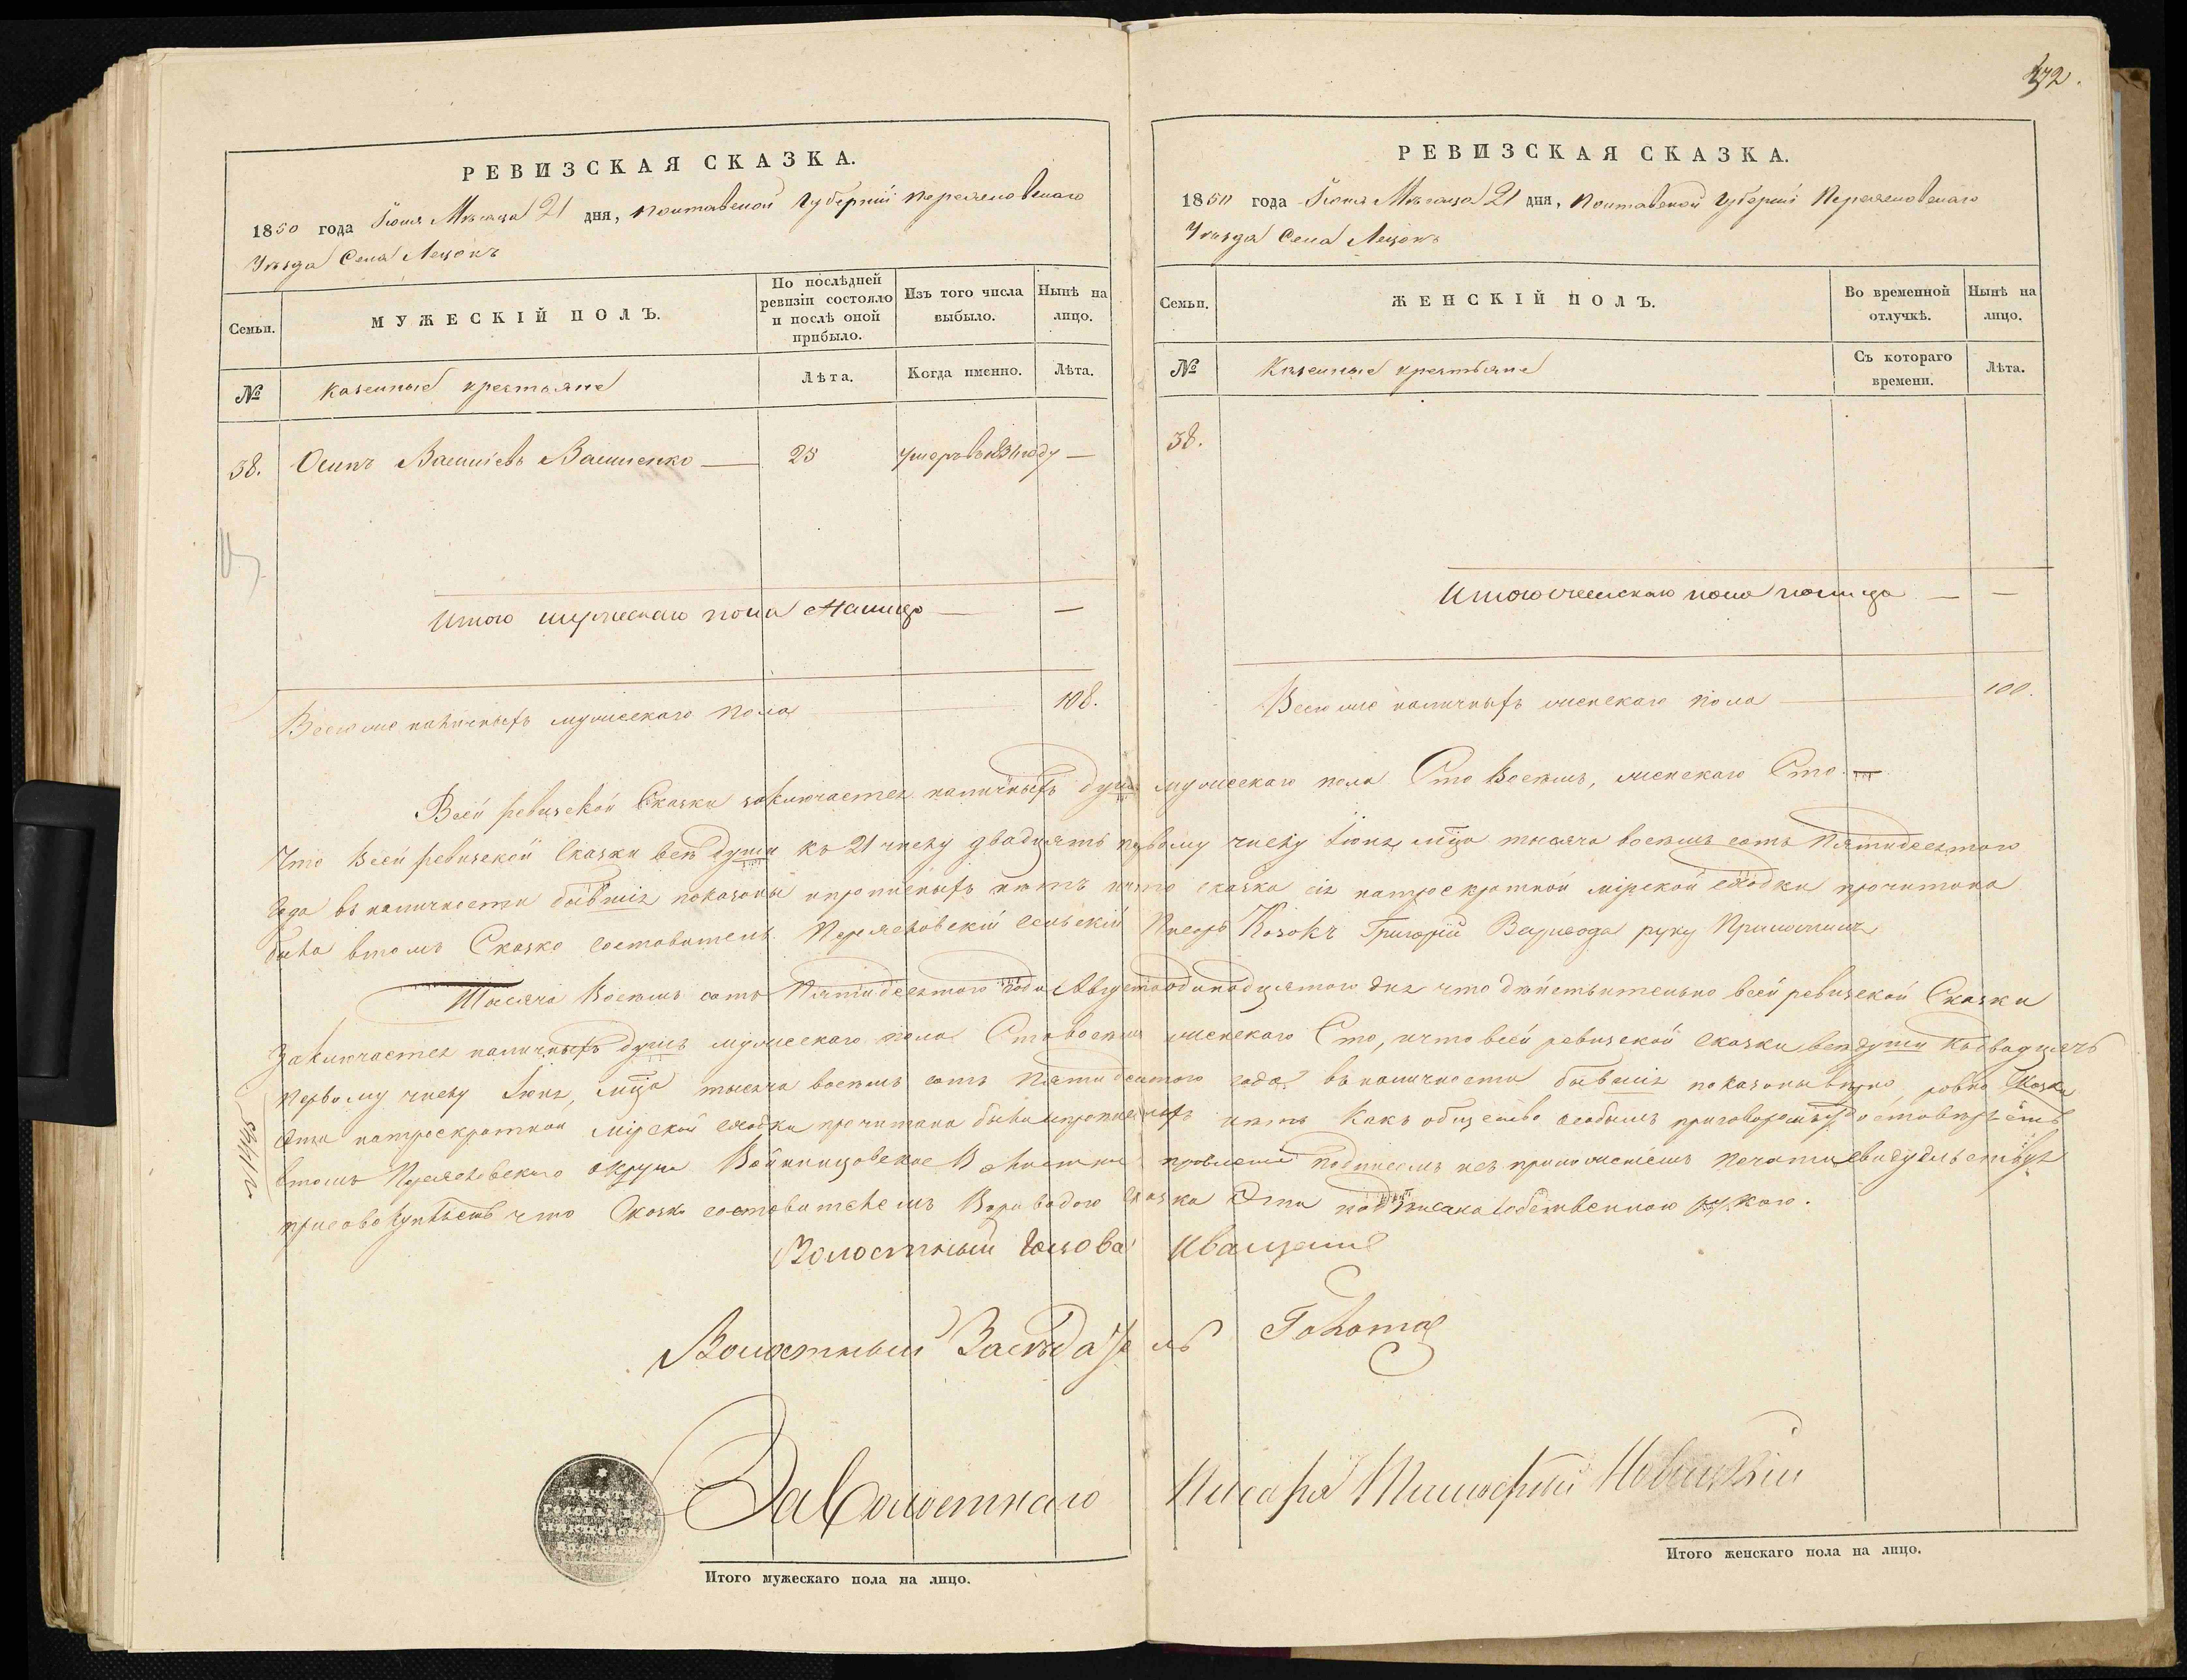 РЕВИЗСКАЯ СКАЗКА.
1850 года Іюня Мѣсяца 21 дня, Полтавской Губерніи Переяславскаго
Уѣзда Села
Семьи.
МУЖЕСКІЙ ПОЛЪ.
По послѣдней ревизіи состояло и послѣ оной прибыло.
Изъ того числа выбыло.
Нынѣ на лицо.
№
Казенные крестьяне
Лѣта.
Когда именно.
Лѣта.
38. Осипъ 25 умеръ въ году —
Итого мужескаго пола налицо — —
Всего же наличныхъ мужескаго пола 108.
472.
РЕВИЗСКАЯ СКАЗКА.
1850 года Іюня Мѣсяца 21 дня, Полтавской Губерніи Переяславскаго
Уѣзда Села
Семьи.
ЖЕНСКІЙ ПОЛЪ.
Во временной отлучкѣ.
Нынѣ на лицо.
№
Казенные крестьяне
Съ котораго времени.
Лѣта.
38.
Итого женскаго пола налицо — —
Всего же наличныхъ женскаго пола 100.
Всей ревизской Сказки заключается наличныхъ душъ мужескаго пола Сто восемь, женскаго Сто. —
Что всей ревизской Сказки всѣ души къ 21 числу двадцать первому числу Іюня мца тысяча восемь сотъ Пятидесятого
года въ наличности бывшія показаны и прописныхъ нѣтъ и что сказка сія на троекратной мірской сходки прочитана
была втомъ Сказко составитель сельскій Писарь Козакъ Григорій Варивода руку Приложилъ
Тысяча Восемь сотъ Пятидесятого года Августа одинадцятого дня что дѣйствительно всей ревизской Сказки
заключается наличныхъ душъ мужескаго пола Сто восемь женскаго Сто, и что всей ревизской сказки всѣ души къ двадцять
первому числу Іюня, мца тысяча восемь сотъ Пятидесятого года въ наличности бывшія показаны вѣрно, ровно Сказка
эта на троекратной мірской сходки прочитана была и прописныхъ нѣтъ Какъ общество особымъ приговоромъ удостовѣряетъ
втомъ Переяславскаго округа Волостное правленіе подписомъ ись приложеніемъ Печати свидѣтельствуя
присовокупляетъ что Сказко составителемъ Вариводою сказка Эта подписана собственною рукою.
Волостный Голова
Волостный Засѣдатель Голота
За Волостнаго Писаря
ПЕЧАТЬ
Итого мужескаго пола на лицо.
Итого женскаго пола на лицо.